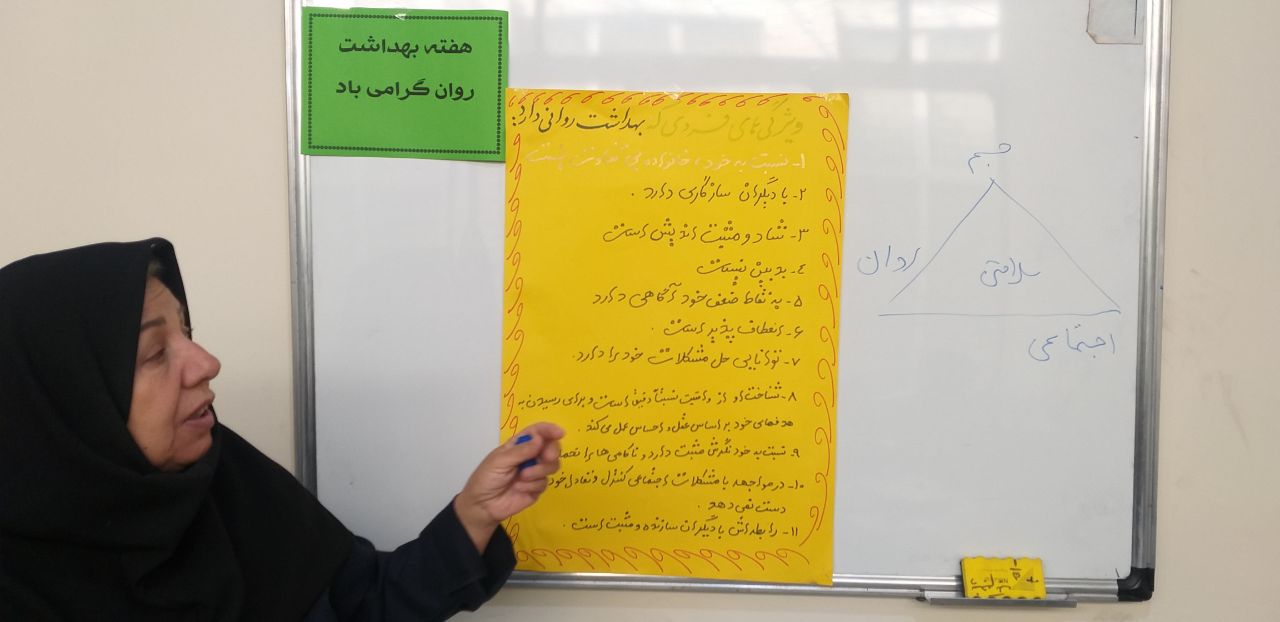 هفته بهداشت
روان گرامی باد
ویژگی های فردی که بهداشت روانی دارد:
۱- نسبت به خود و خانواده بی تفاوت نیست
۲- با دیگران سازگاری دارد .
۳- شاد و مثبت اندیش است
٤- بدبین نیست
۵- به نقاط ضعف خود آگاهی دارد
۶- انعطاف پذیر است .
۷- توانایی حل مشکلات خود را دارد.
۸- شناخت او از واقعیت نسبتاً دقیق است و برای رسیدن به
هدفهای خود بر اساس عقل و احساس عمل می کند .
۹- نسبت به خود نگرش مثبت دارد و ناکامی ها را
۱۰- در مواجهه با مشکلات اجتماعی کنترل و تعادل خود
دست نمی دهد .
۱۱- رابطه اش با دیگران سازنده و مثبت است .
جسم
روان
سلامتی
اجتماعی